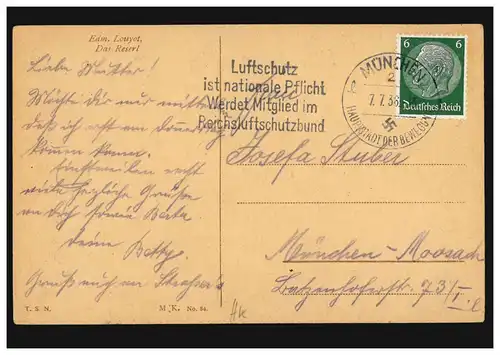 Edm. Louyot,
Das Reserl
Liebe Mutter!
Möchte dir nur mitteilen
daß ich erst am Donnerstag
kommen kann.
Einstweilen recht
viele herzliche Grüße
an dich sowie Berta
deine Betty.
Gruß auch an
T. S. N.
M. K. No. 84.
Luftschutz
ist nationale Pflicht
Werdet Mitglied im
Reichsluftschutzbund
MÜNCHEN
2
7.7.36
HAUPTSTADT DER BEWEGUNG
6 6
Deutsches Reich
Frau
Josefa Stuber
München-Moosach
73/I.